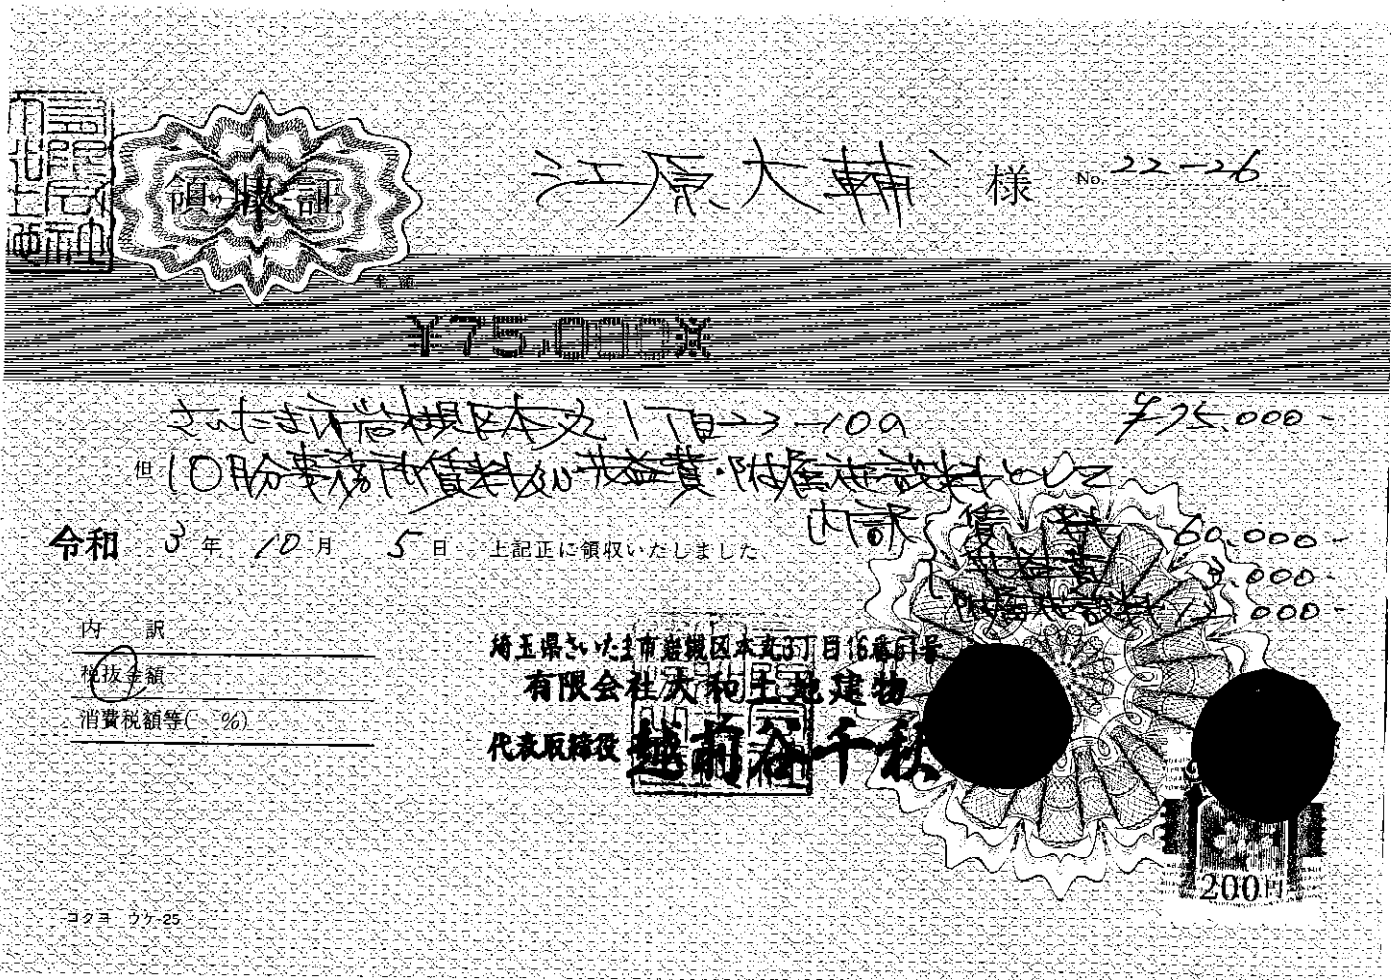 領収証
江原大輔 様 No. 22-26
金額
¥75,000※
さいたま市岩槻区本丸1丁目23-10a ¥75,000-
但 10月分事務所賃料及び共益費・附属施設料として
内訳 賃料 60,000-
共益費 3,000-
附属施設料 12,000-
令和 3 年 10 月 5 日 上記正に領収いたしました
内訳
税抜金額
消費税額等( %)
埼玉県さいたま市岩槻区本丸3丁目16番61号
有限会社大和土地建物
代表取締役 越前谷千秋
200円
コクヨ ウケ-25